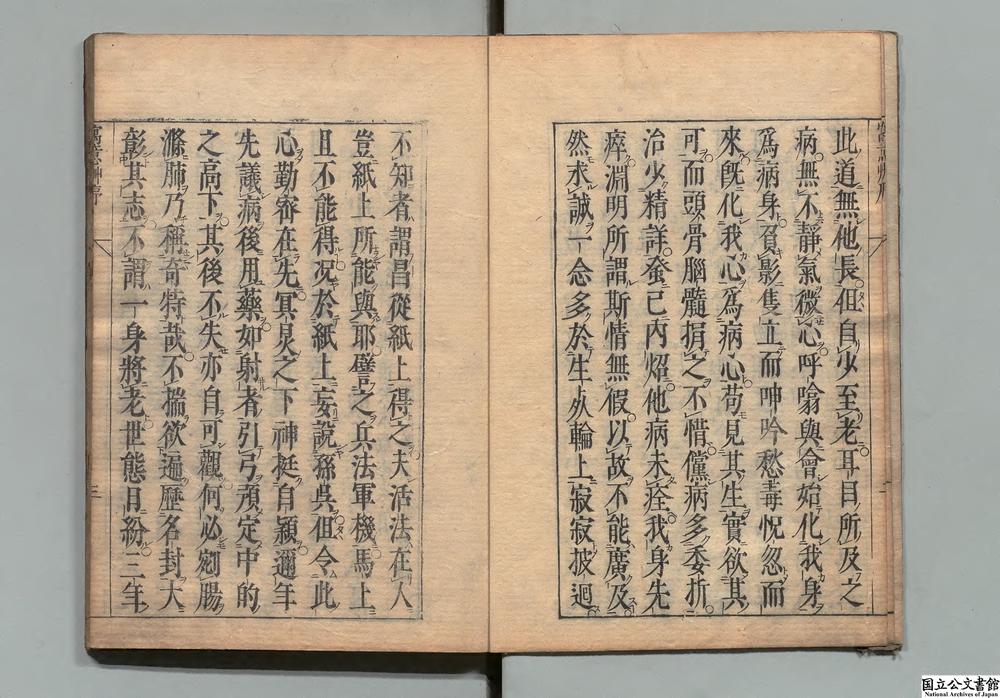 此道無他長但自少至老耳目所及之
病無不靜氣微心呼噏與會始化我身
爲病身負影隻立而呻吟愁毒恍忽而
來旣化我心爲病心苟見其生實欲其
可而頭骨腦髓捐之不惜儻病多委折
治少精詳蚤已內炤他病未痊我身先
瘁淵明所謂斯情無假以故不能廣及
然求誠一念多於生死輪上寂寂披迴
不知者謂昌從紙上得之夫活法在人
豈紙上所能與耶譬之兵法軍機馬上
且不能得况於紙上妄說孫吳但令此
心勤密在先冥炅之下神挺自穎邇年
先議病後用藥如射者引弓預定中的
之高下其後不失亦自可觀何必剜腸
滌肺乃稱奇特哉不揣欲遍歷名封大
彰其志不謂一身將老世態日紛三年
國立公文書館
National Archives of Japan